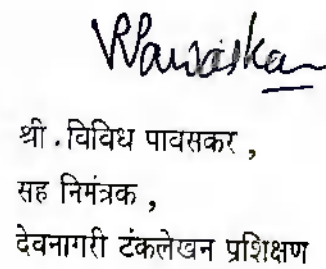 श्री . विविध पावसकर ,
सह निमंत्रक ,
देवनागरी टंकलेखन प्रशिक्षण